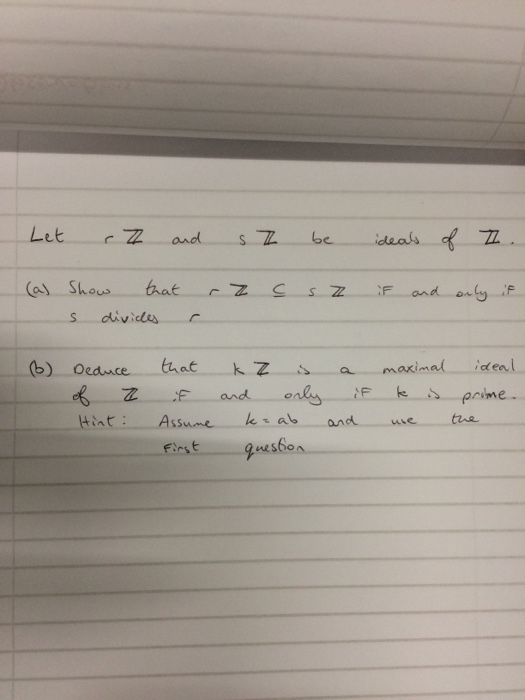 Let r ℤ and s ℤ be ideals of ℤ.
(a) Show that r ℤ ⊆ s ℤ iF and only iF
s divides r
(b) Deduce that k ℤ is a maximal ideal
of ℤ iF and only iF k is prime.
Hint: Assume k = ab and use the
First question